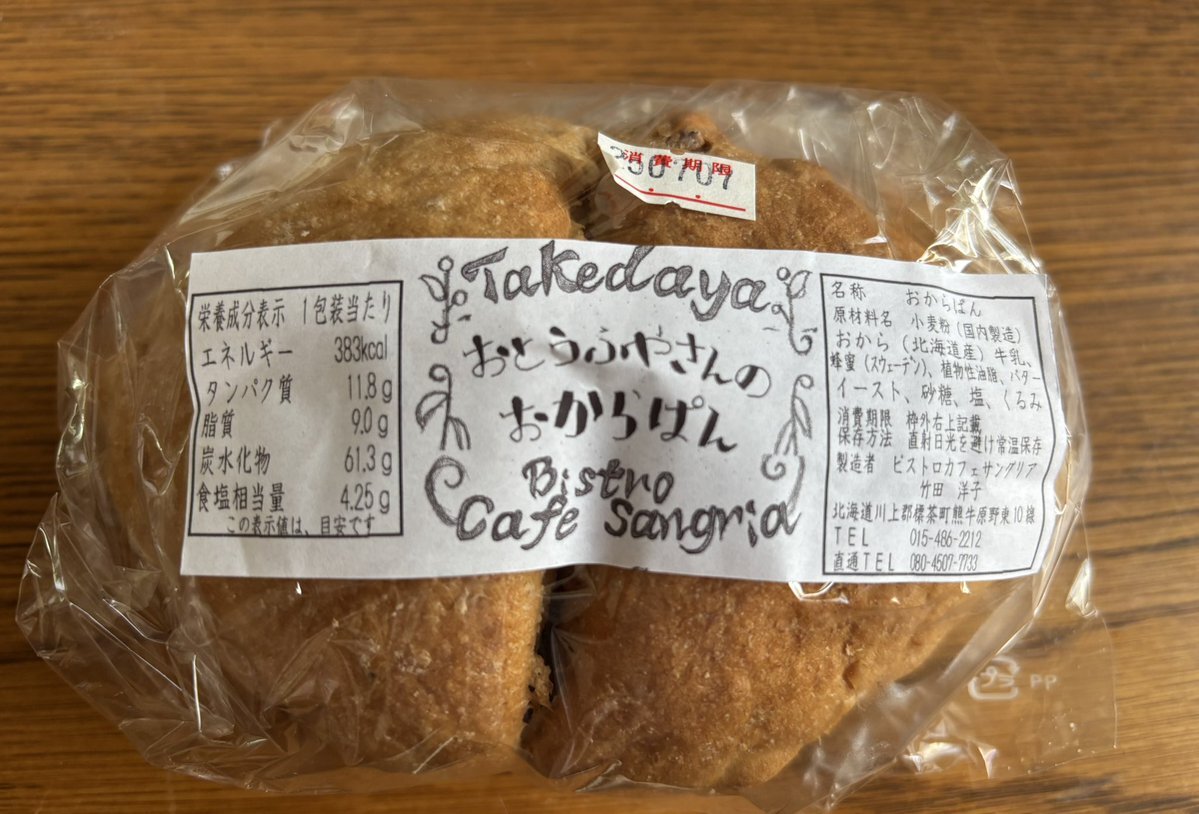 消費期限
250707
栄養成分表示 1包装当たり
エネルギー 383kcal
タンパク質 11.8g
脂質 9.0g
炭水化物 61.3g
食塩相当量 4.25g
この表示値は、目安です
Takedaya
おとうふやさんの
おからぱん
Bistro
Cafe Sangria
名称 おからぱん
原材料名 小麦粉(国内製造)
おから(北海道産)牛乳、
蜂蜜(スウェーデン)、植物性油脂、バター
イースト、砂糖、塩、くるみ
消費期限 枠外右上記載
保存方法 直射日光を避け常温保存
製造者 ビストロカフェサングリア
竹田 洋子
北海道川上郡標茶町熊牛原野東10線
TEL 015-486-2212
直通TEL 080-4507-7733
プラ PP